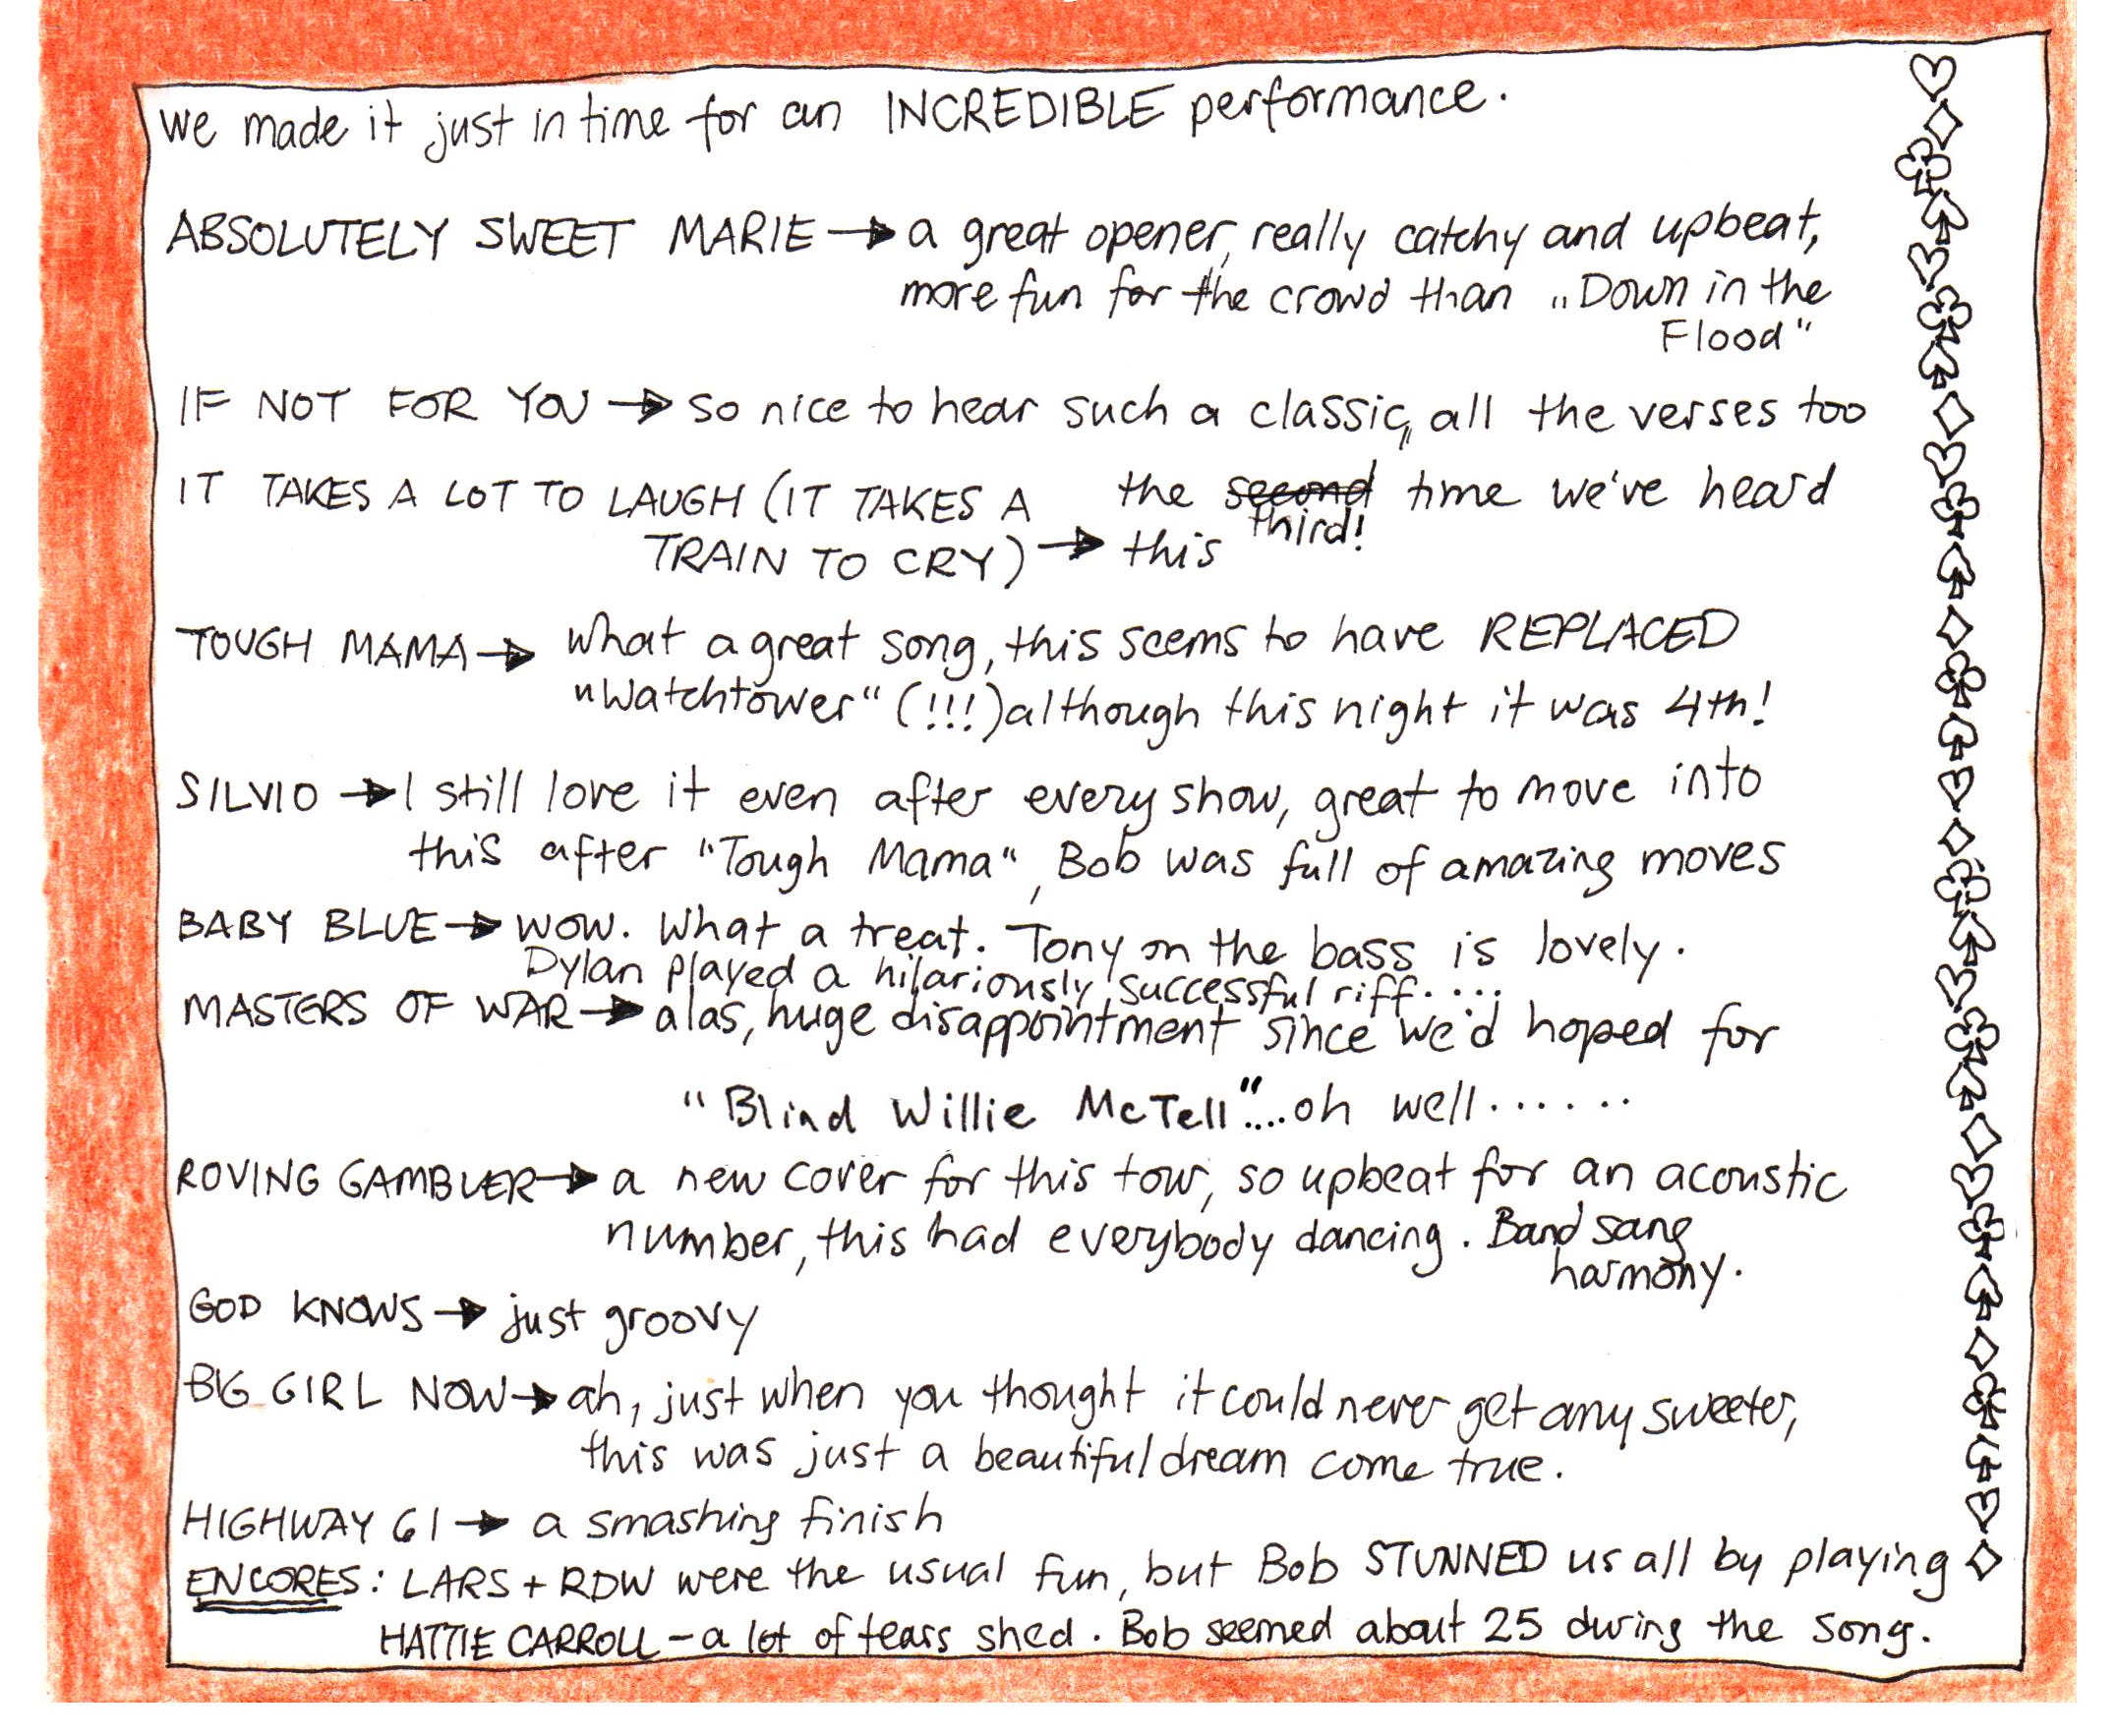 we made it just in time for an INCREDIBLE performance.
ABSOLUTELY SWEET MARIE → a great opener, really catchy and upbeat,
more fun for the crowd than „Down in the
Flood"
IF NOT FOR YOU → so nice to hear such a classic, all the verses too
IT TAKES A LOT TO LAUGH (IT TAKES A the second time we've heard
third!
TRAIN TO CRY) → this
TOUGH MAMA → what a great song, this seems to have REPLACED
"Watchtower" (!!!) although this night it was 4th!
SILVIO → I still love it even after every show, great to move into
this after "Tough Mama", Bob was full of amazing moves
BABY BLUE → wow. What a treat. Tony on the bass is lovely.
Dylan played a hilariously successful riff....
MASTERS OF WAR → alas, huge disappointment since we'd hoped for
"Blind Willie McTell"....oh well......
ROVING GAMBLER → a new cover for this tour, so upbeat for an acoustic
number, this had everybody dancing. Band sang
harmony.
GOD KNOWS → just groovy
BIG GIRL NOW → ah, just when you thought it could never get any sweeter,
this was just a beautiful dream come true.
HIGHWAY 61 → a smashing finish
ENCORES: LARS + RDW were the usual fun, but Bob STUNNED us all by playing
HATTIE CARROLL - a lot of tears shed. Bob seemed about 25 during the song.